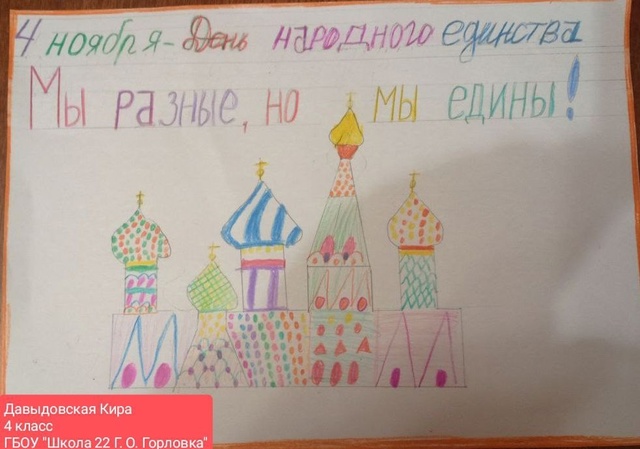 4 ноября - День народного единства
Мы разные, но мы едины!
Давыдовская Кира
4 класс
ГБОУ "Школа 22 Г. О. Горловка"